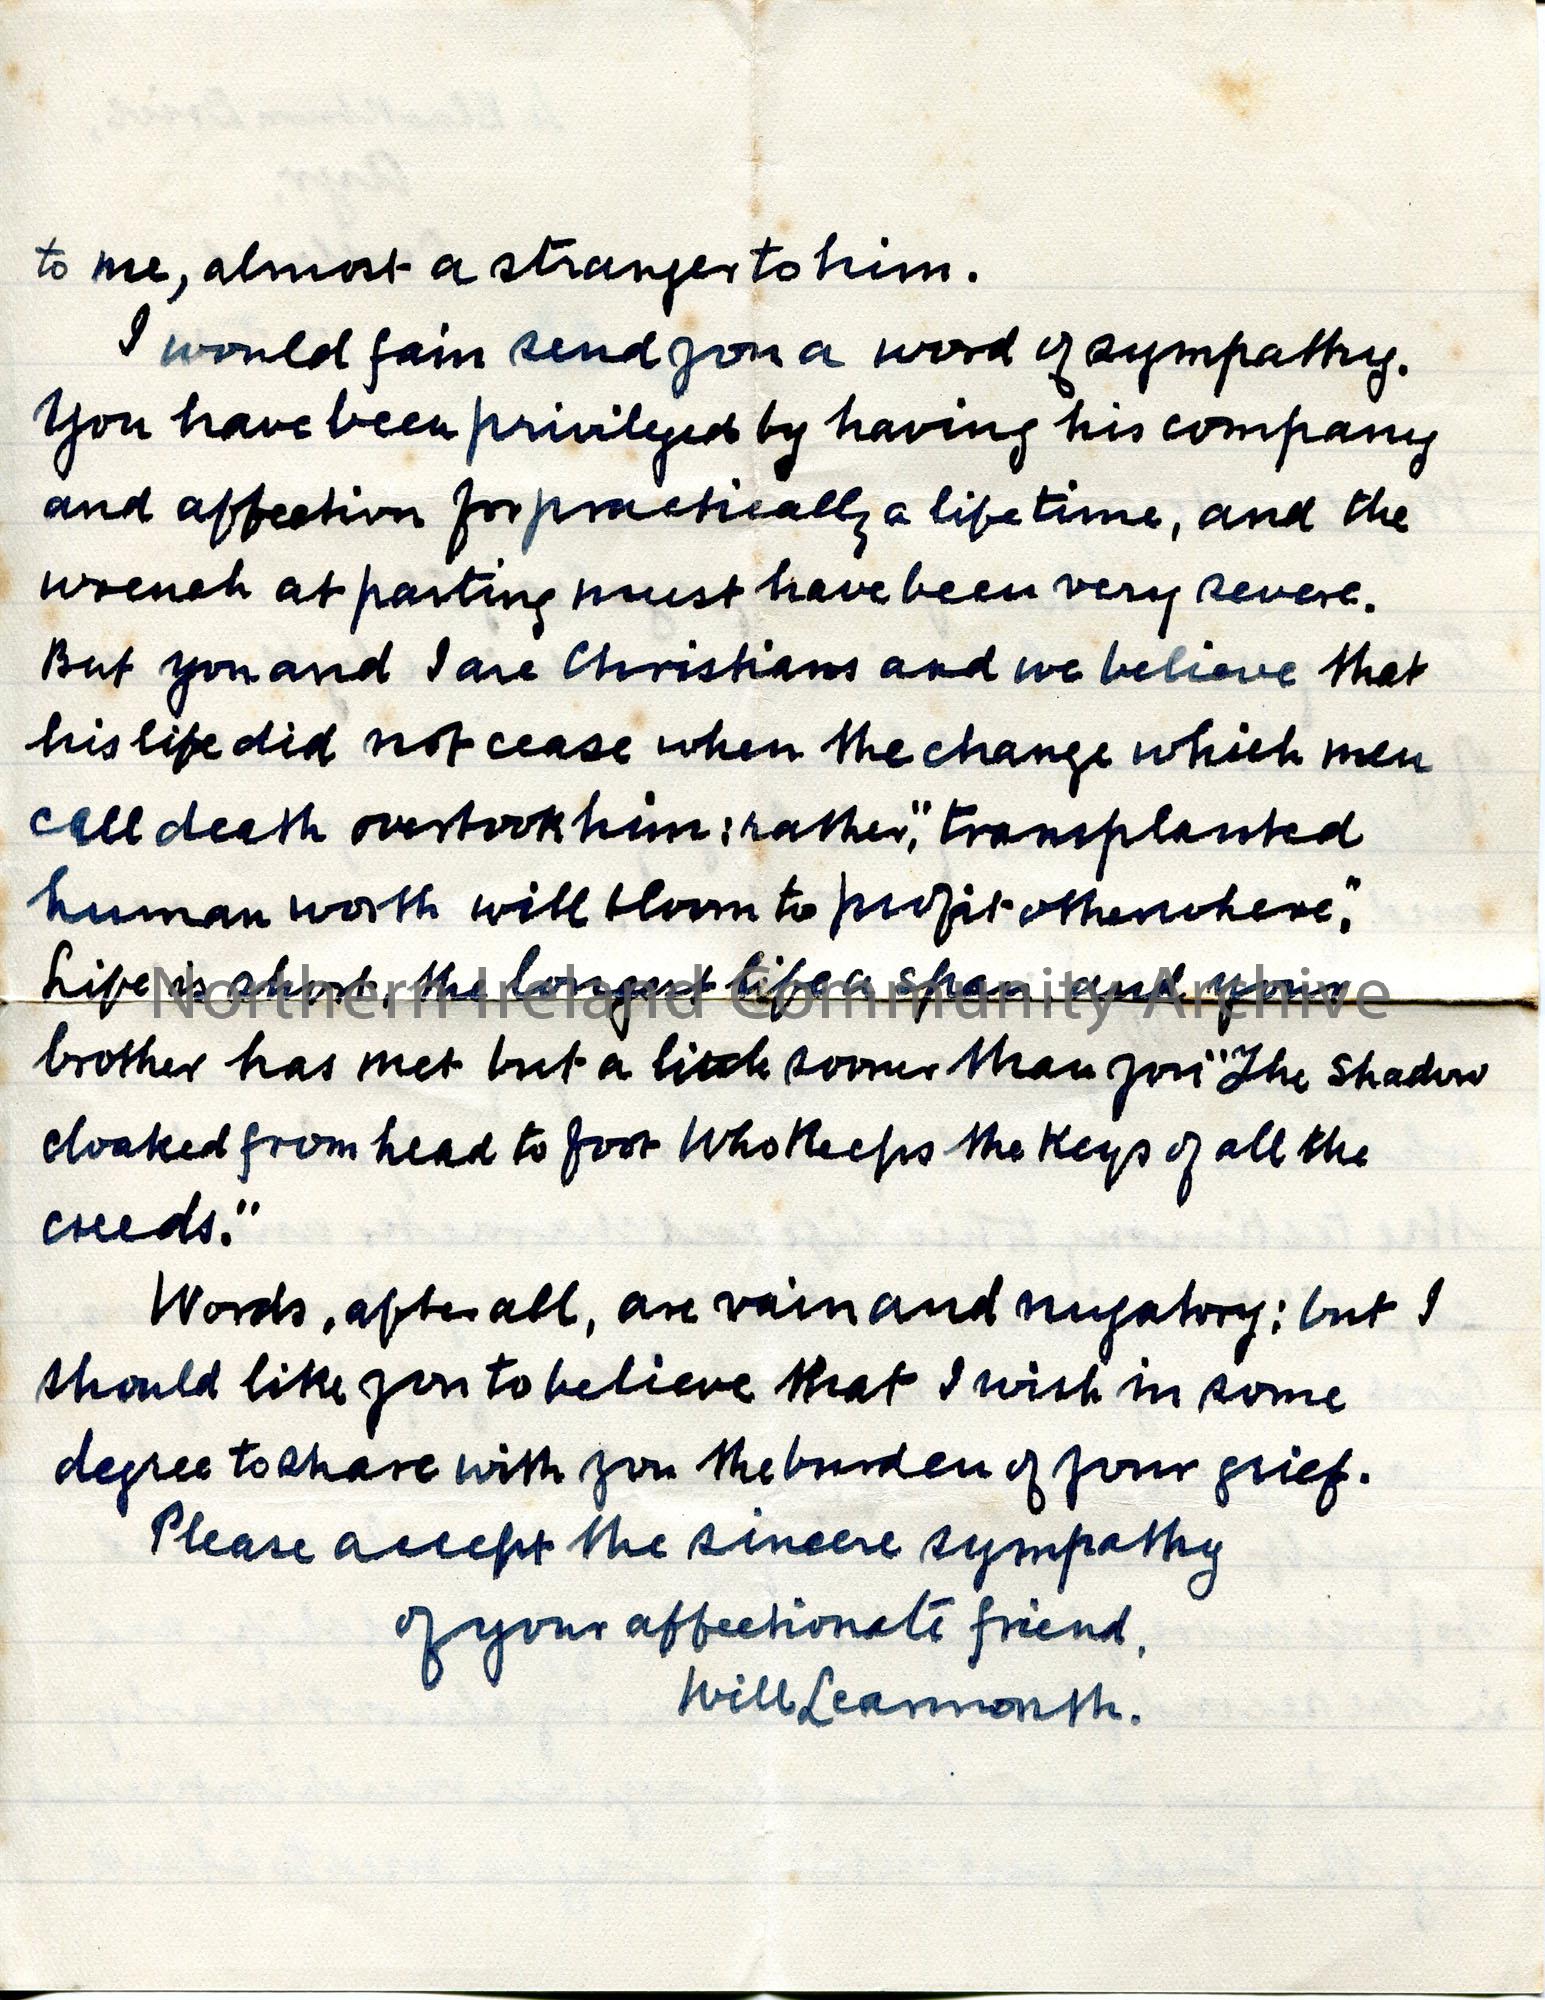 to me, almost a stranger to him.
I would fain send you a word of sympathy.
You have been privileged by having his company
and affection for practically a lifetime, and the
wrench at parting must have been very severe.
But you and I are Christians and we believe that
his life did not cease when the change which men
call death overtook him: rather, "transplanted
human worth will bloom to profit otherwhere".
Life is short, the longest life a span and your
Northern Ireland Community Archive
brother has met but a little sooner than you "The Shadow
cloaked from head to foot Who Keeps the Keys of all the
creeds."
Words, after all, are vain and nugatory: but I
should like you to believe that I wish in some
degree to share with you the burden of your grief.
Please accept the sincere sympathy
of your affectionate friend,
Will Learmonth.